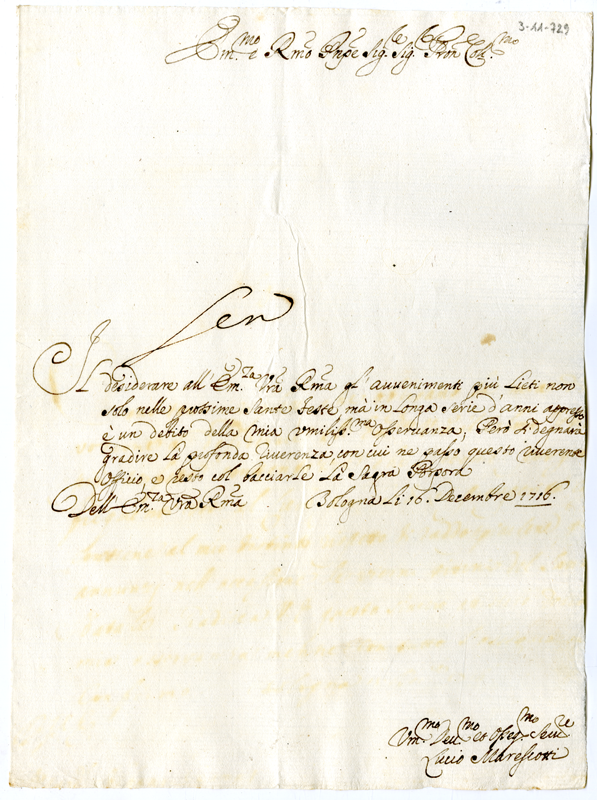 3-11-729
Em.mo e Rmo Pnpe Sig. Sig. Pron Col.mo
Il desiderare all' Em.za Vra Rma gl' avvenimenti più lieti non
solo nelle prossime Sante feste, mà in longa serie d'anni appresso
è un debito della mia umiliss.ma osservanza; Però si degnarà
gradire la profonda riverenza, con cui ne passo questo riverente
Officio, e resto col bacciarle la Sagra Porpora
Dell' Em.za Vra Rma Bologna li 16. Decembre 1716.
Vm.mo Deu.mo et Osseq.mo Seru.re
Lucio Marescotti